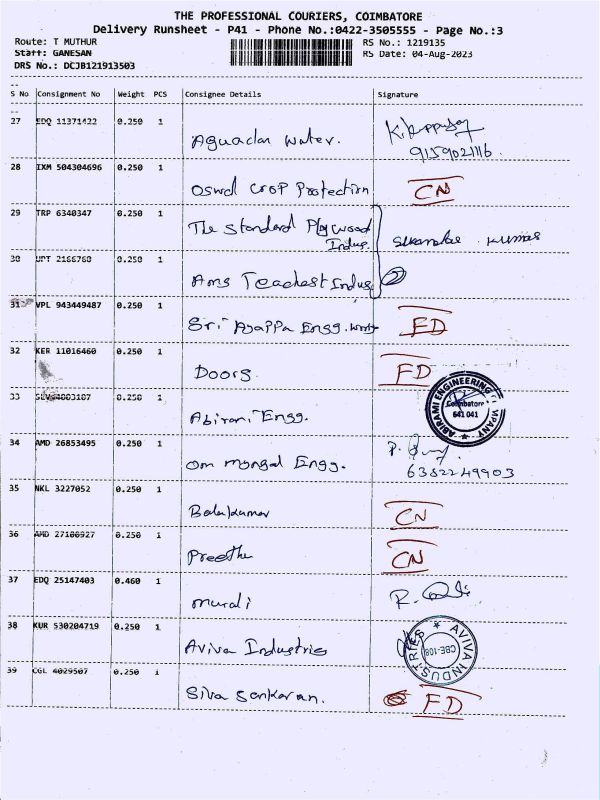 THE PROFESSIONAL COURIERS, COIMBATORE
Delivery Runsheet - P41 - Phone No.:0422-3505555 - Page No.:3
Route: T MUTHUR RS No.: 1219135
Staff: GANESAN RS Date: 04-Aug-2023
DRS No.: DCJB121913503
S No Consignment No Weight PCS Consignee Details Signature
27 EDQ 11371422 0.250 1
Water. 9159021116
28 IXM 504304696 0.250 1
Oswal Crop Protection CN
29 TRP 6340347 0.250 1
The Standard Plywood
Indus. kumar
30 2166760 0.250 1
Ams Teachest Indus
31 VPL 943449487 0.250 1
Sri Ayappa Engg. works FD
32 KER 11016460 0.250 1
Doors. FD
33 0.250 1
Abirami Engg. ABIRAMI ENGINEERING
Coimbatore
641 041
34 AMD 26853495 0.250 1
Om Mongal Engg. 6382249903
35 NKL 3227052 0.250 1
Balakumar CN
36 AMD 27100927 0.250 1
Preethe CN
37 EDQ 25147403 0.460 1
Murali
38 KUR 530204719 0.250 1
Aviva Industries AVIVA INDUSTRIES
CBE-108
39 CGL 4029507 0.250 1
Siva Sankaran. FD